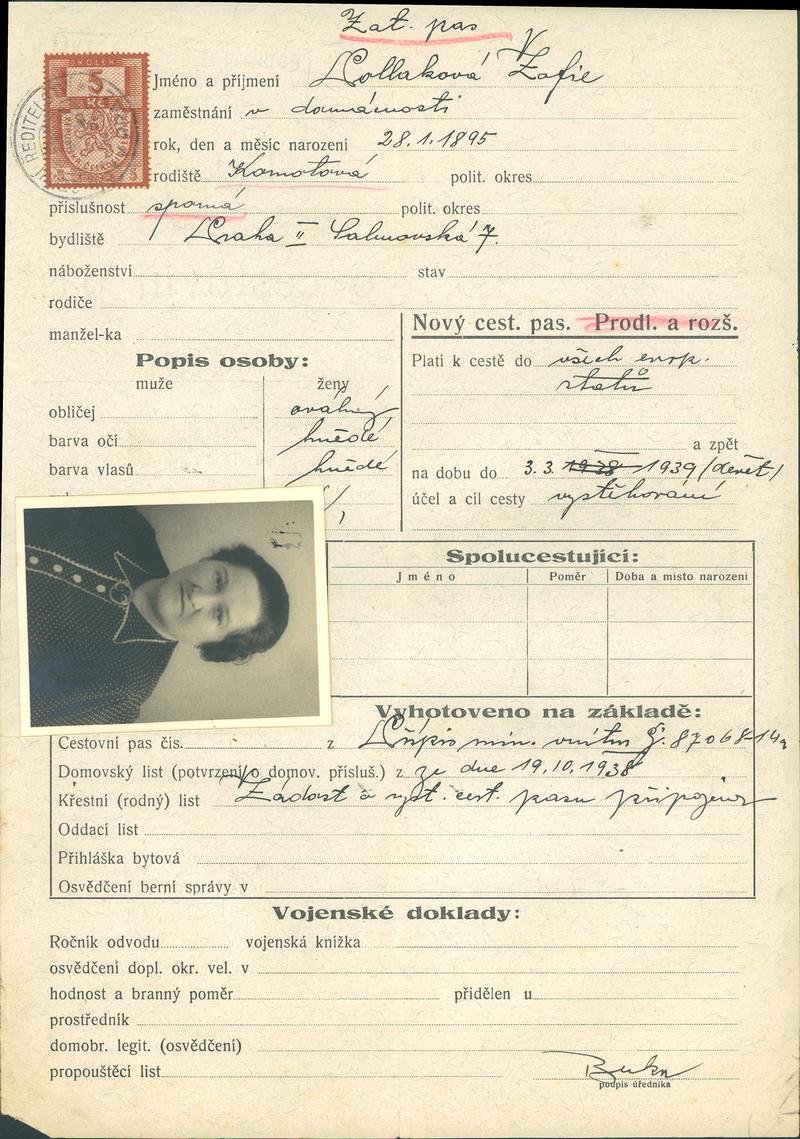 Zat. pas
KOLEK
5
Kč
ŘEDITEL
Jméno a příjmení Pollaková Žofie
zaměstnání v domácnosti
rok, den a měsíc narození 28.1.1895
rodiště Komotová polit. okres
příslušnost sporná polit. okres
bydliště Praha II Salmovská 7.
náboženství stav
rodiče
manžel-ka
Nový cest. pas. Prodl. a rozš.
Popis osoby:
muže ženy
obličej oválný
barva očí hnědé
barva vlasů hnědé
Platí k cestě do všech evrop.
států
a zpět
na dobu do 3.3. 1938 1939 (devět)
účel a cíl cesty vystěhování
Spolucestující:
Jméno Poměr Doba a místo narození
Vyhotoveno na základě:
Cestovní pas čís. z Přípis min. vnitra č. 87068-14
Domovský list (potvrzení o domov. přísluš.) z ze dne 19.10.1938
Křestní (rodný) list Žádost o vyst. cest. pasu připojena
Oddací list
Přihláška bytová
Osvědčení berní správy v
Vojenské doklady:
Ročník odvodu vojenská knížka
osvědčení dopl. okr. vel. v
hodnost a branný poměr přidělen u
prostředník
domobr. legit. (osvědčení)
propouštěcí list
podpis úředníka